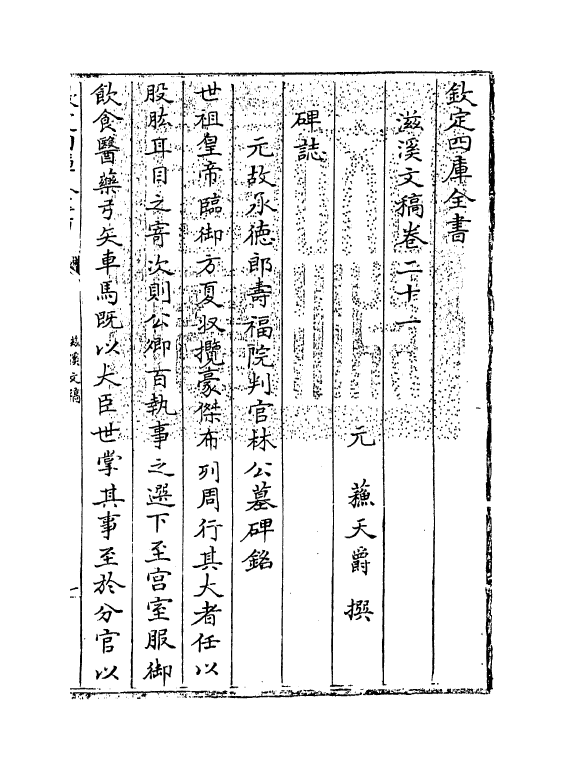 欽定四庫全書
滋溪文稿卷二十一
元 蘇天爵 撰
碑誌
元故承德郎壽福院判官林公墓碑銘
世祖皇帝臨御方夏収攬豪傑布列周行其大者任以
股肱耳目之寄次則公卿百執事之選下至宫室服御
飲食醫藥弓矢車馬既以大臣世掌其事至於分官以
滋溪文稿
一